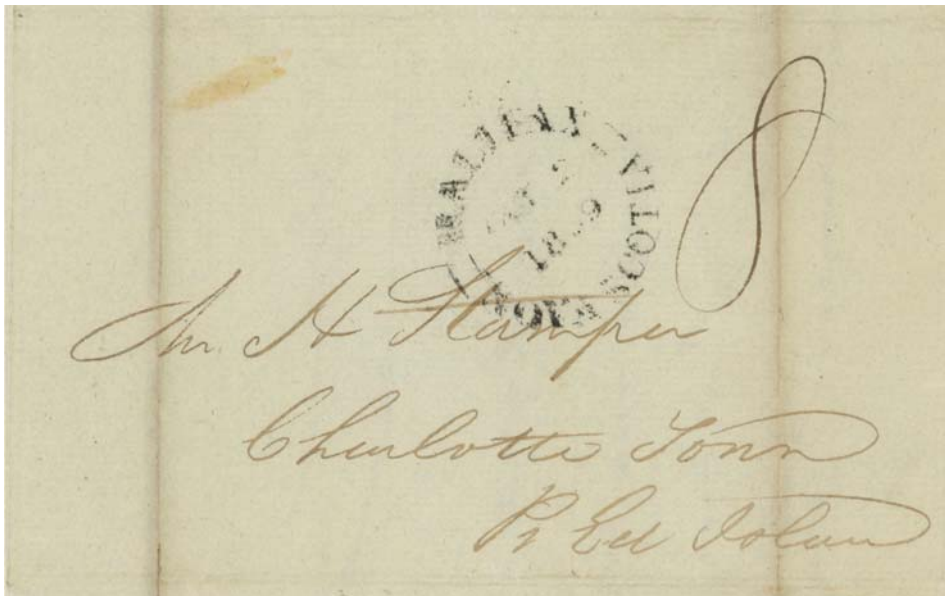 HALIFAX
NOVA SCOTIA
1839
8
Mr. H Stamper
Charlotte Town
Pr Ed Island